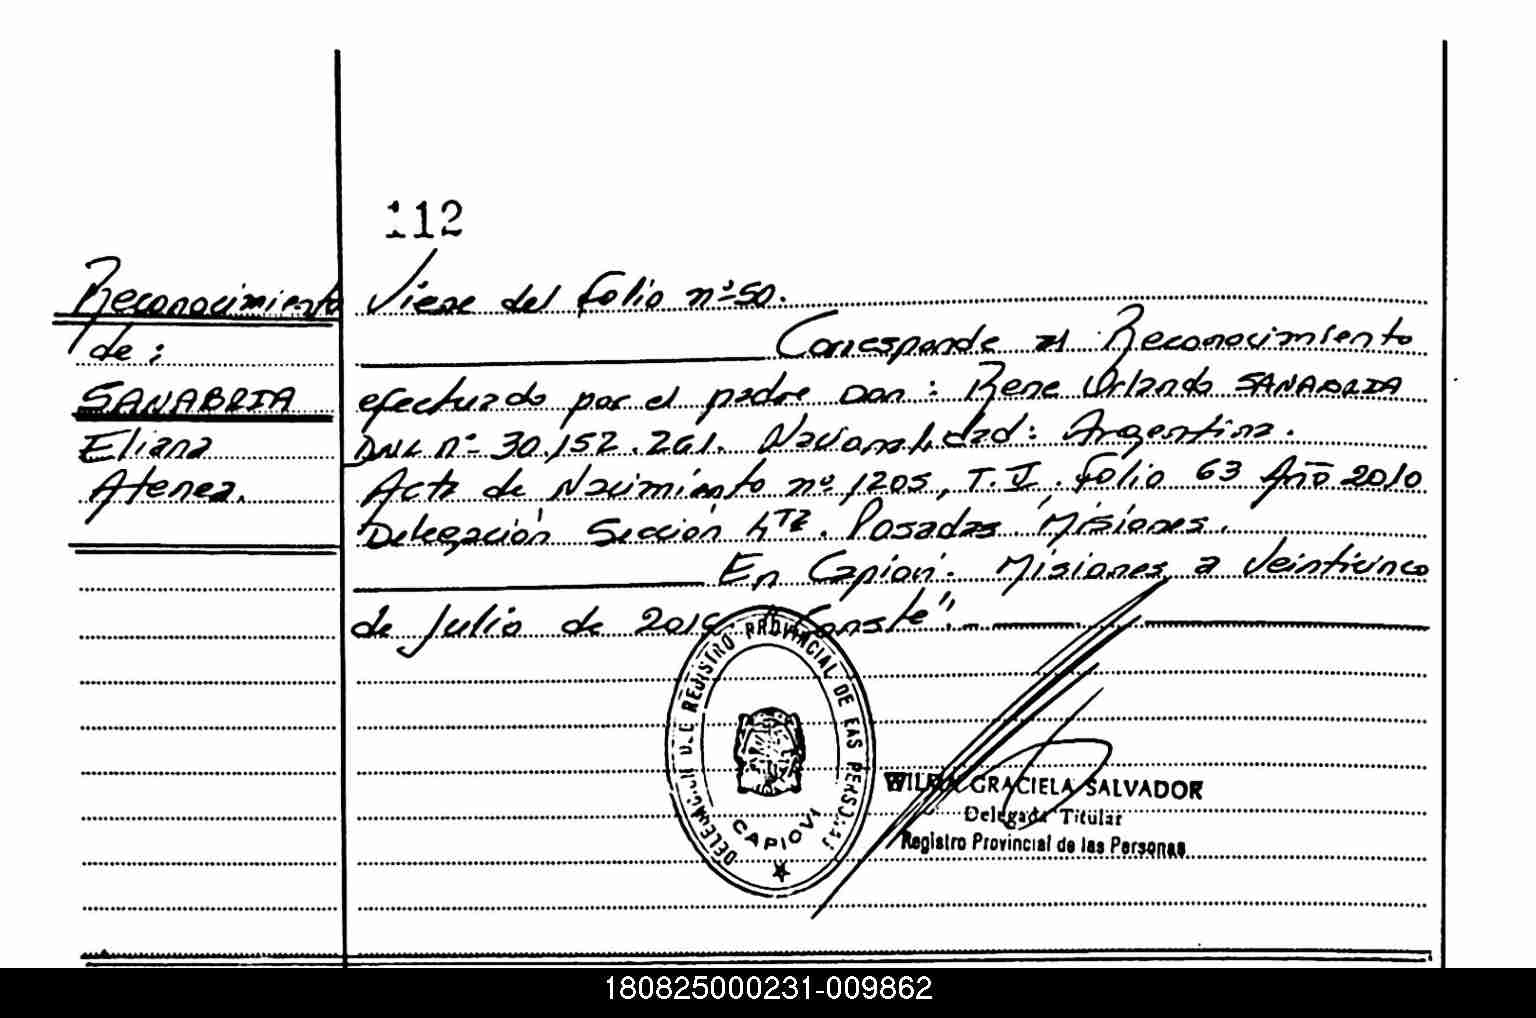 112
Reconocimiento
de:
SANABRIA
Eliana
Atenea.
Viene del folio nº 50.
Corresponde al Reconocimiento
efectuado por el padre Don: Rene Orlando SANABRIA
DNI. nº 30.152.261. Nacionalidad: Argentina.
Acta de Nacimiento nº 1205, T. I. folio 63 Año 2010
Delegación Sección 4ta. Posadas, Misiones.
En Capioví. Misiones a Veinticinco
de Julio de "Conste".-
DELEGACION DEL REGISTRO PROVINCIAL DE LAS PERSONAS
CAPIOVI
WILMA GRACIELA SALVADOR
Delegada Titular
Registro Provincial de las Personas
180825000231-009862